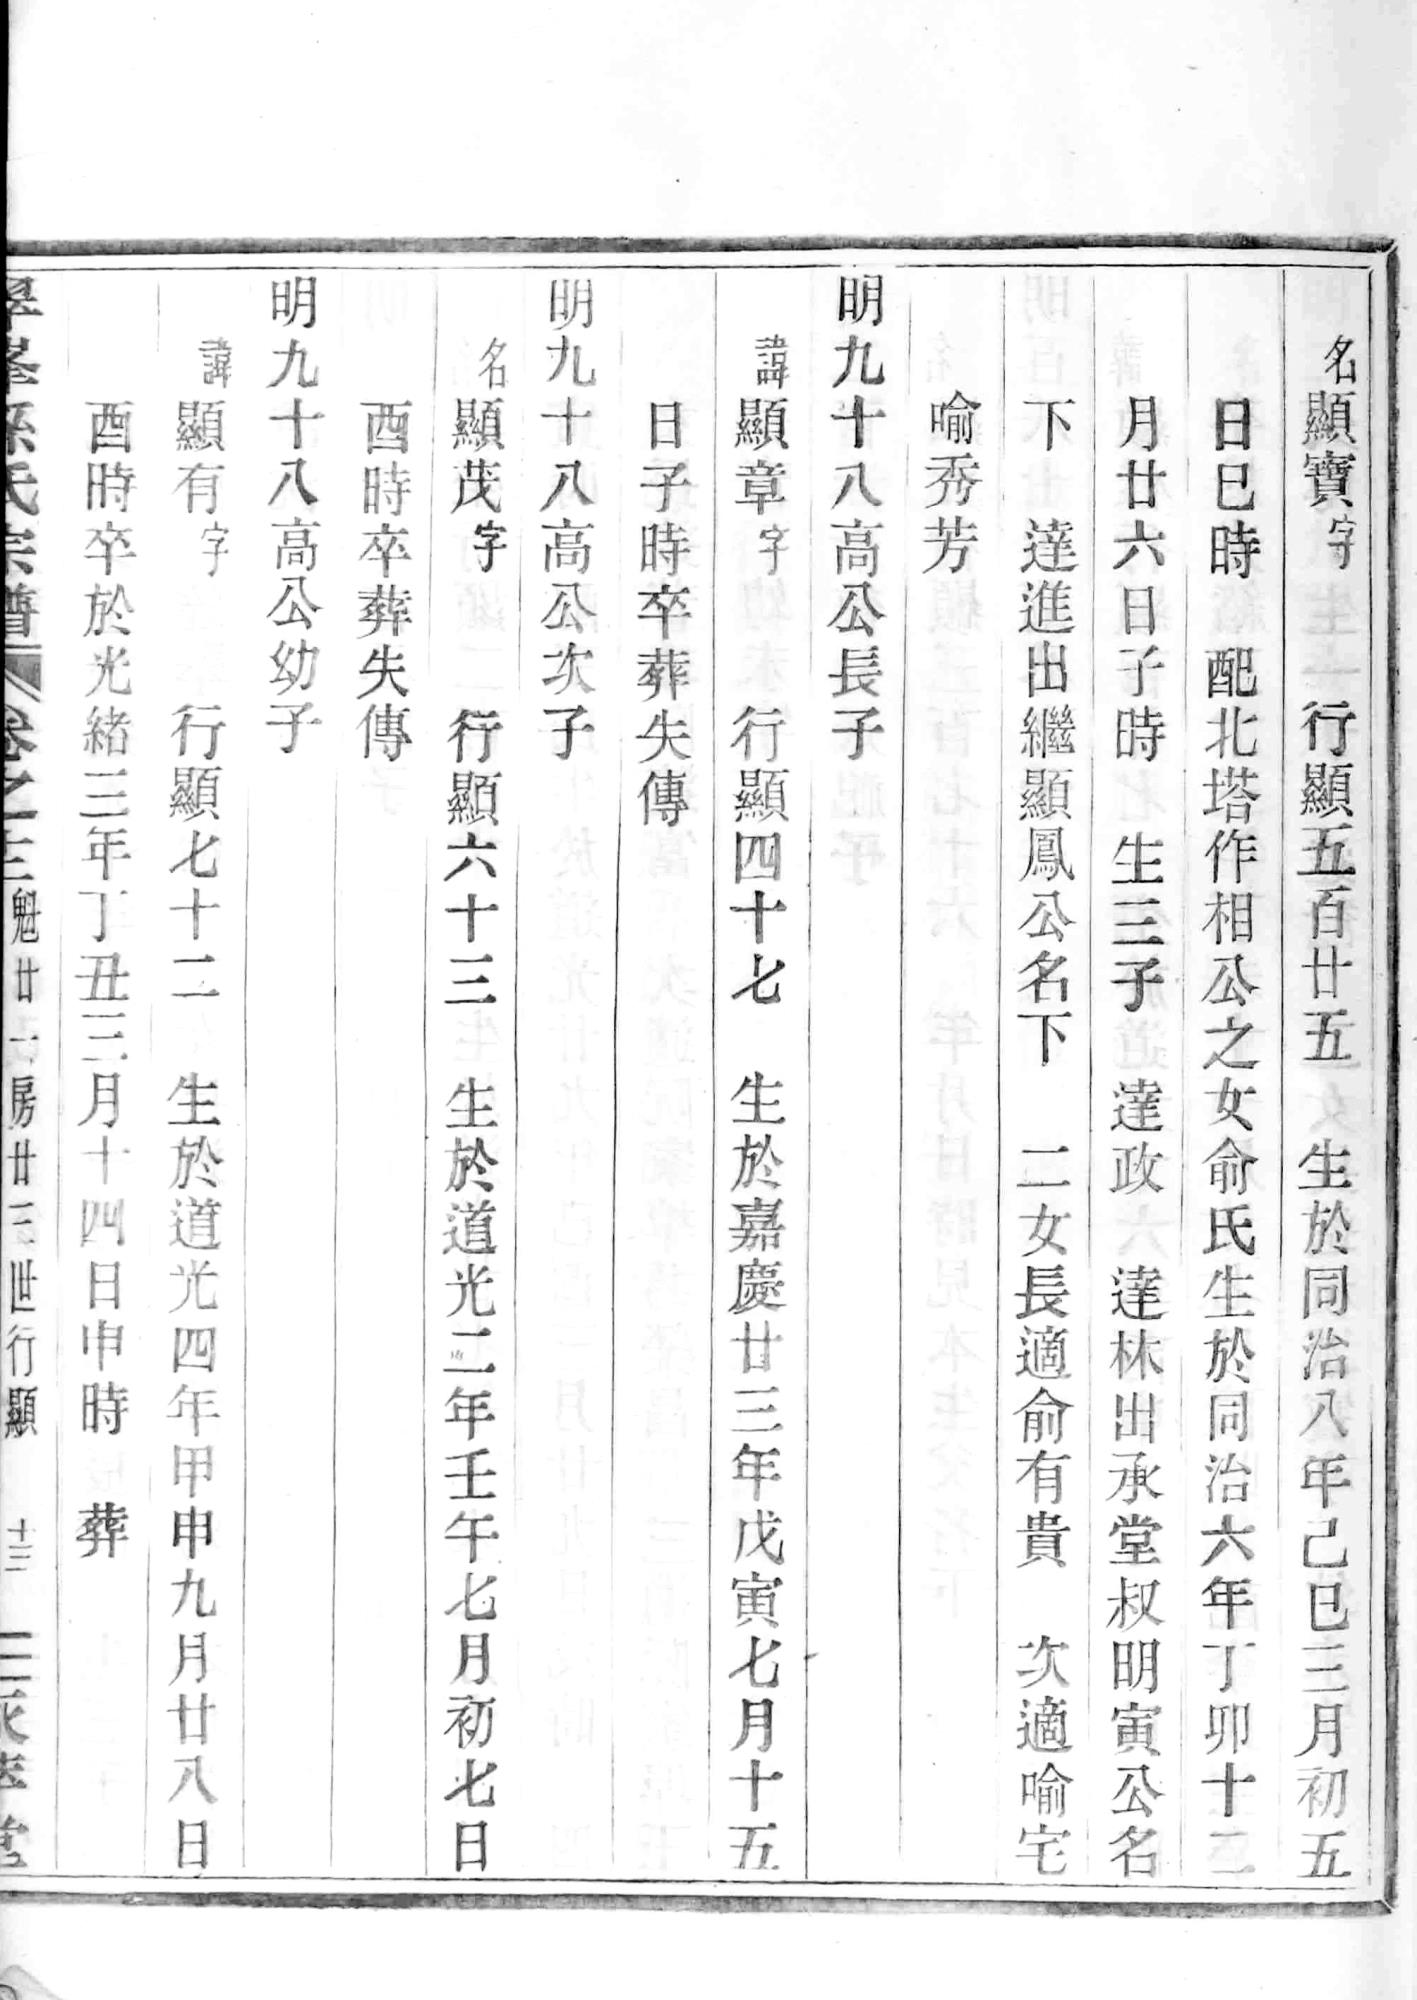 名顯寶字　行顯五百廿五　生於同治八年己巳三月初五
日巳時　配北塔作相公之女俞氏生於同治六年丁卯十二
月廿六日子時　生三子　達政　達林出承堂叔明寅公名
下　達進出繼顯鳳公名下　二女長適俞有貴　次適喻宅
喻秀芳
明九十八高公長子
諱顯章字　行顯四十七　生於嘉慶廿三年戊寅七月十五
日子時卒葬失傳
明九十八高公次子
名顯茂字　行顯六十三　生於道光二年壬午七月初七日
酉時卒葬失傳
明九十八高公幼子
諱顯有字　行顯七十二　生於道光四年甲申九月廿八日
酉時卒於光緒三年丁丑三月十四日申時　葬
孫氏宗譜　卷之三　魁廿一房廿三世行顯　十三　堂